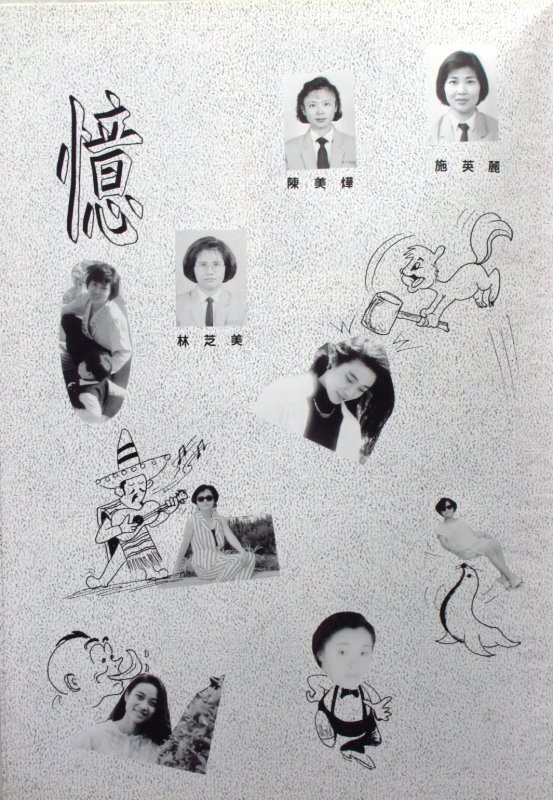 憶
陳美燁
施英麗
林芝美